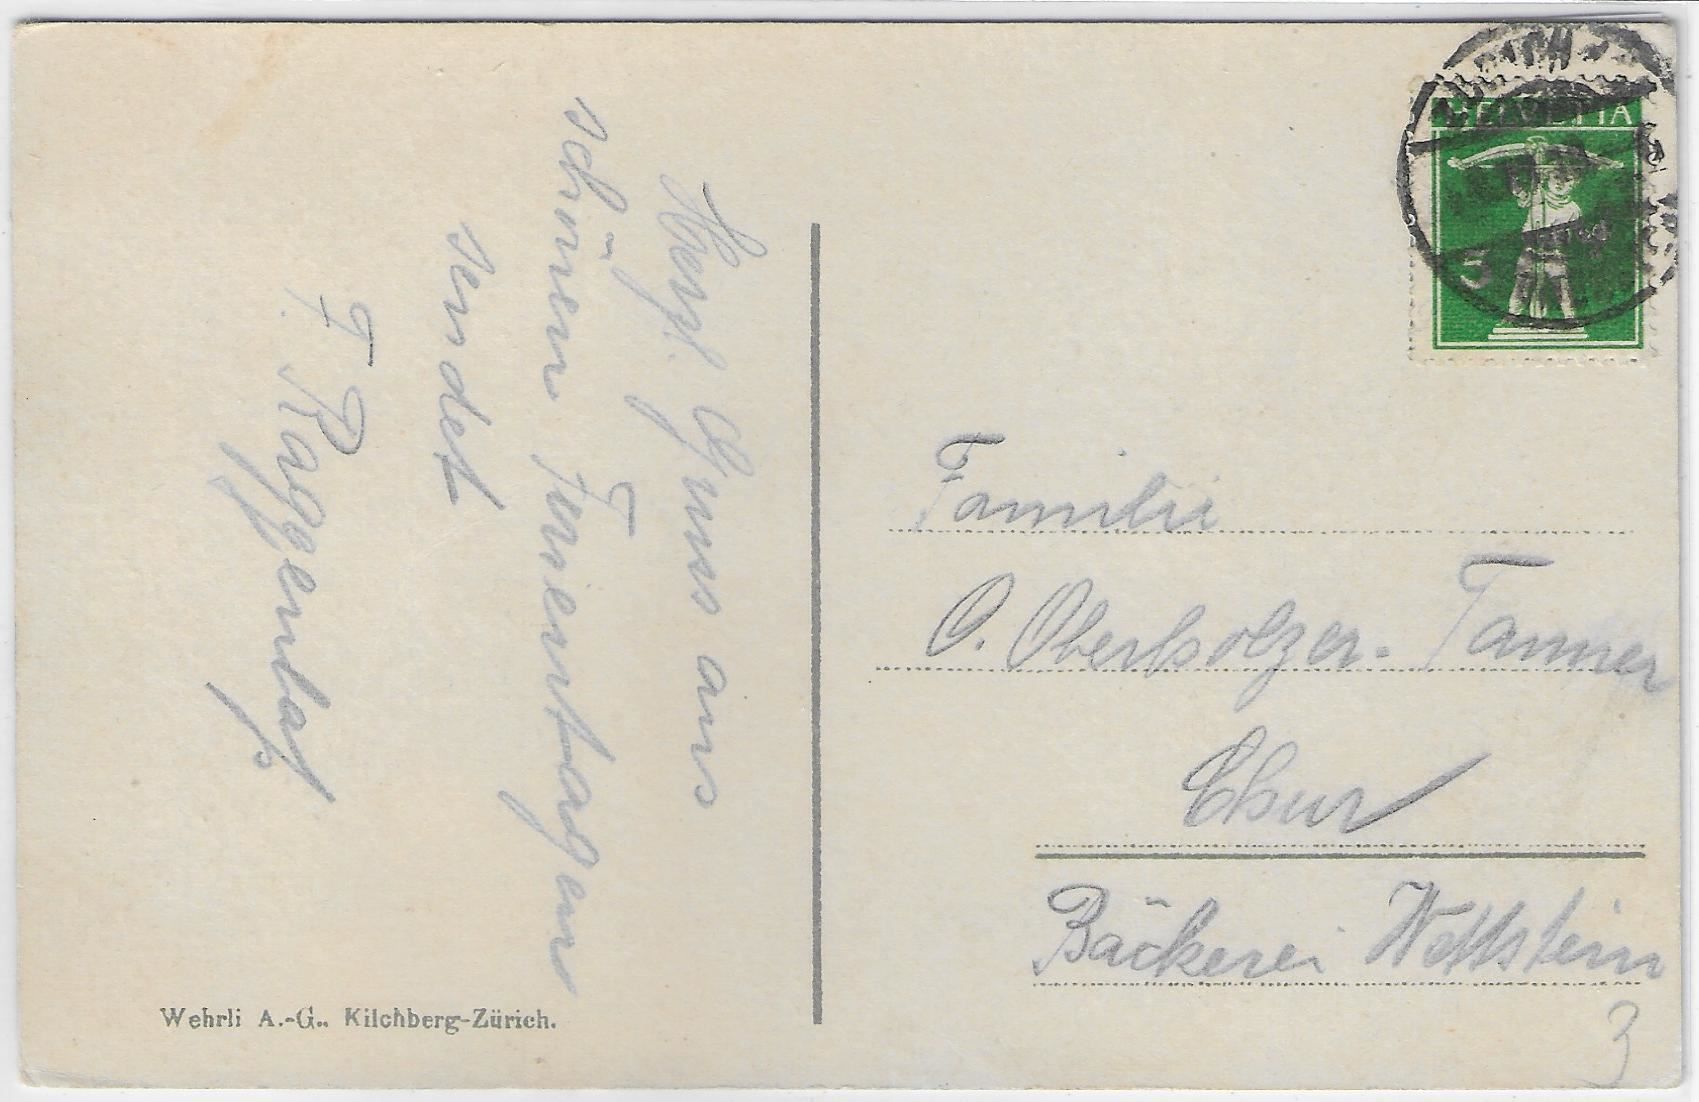 Herzl. Gruss aus
schönen Ferientagen
sendet
F. Raggenbass
Wehrli A.-G., Kilchberg-Zürich.
HELVETIA
5
Familie
O. Oberholzer-Tanner
Chur
Bäckerei Wettstein
3